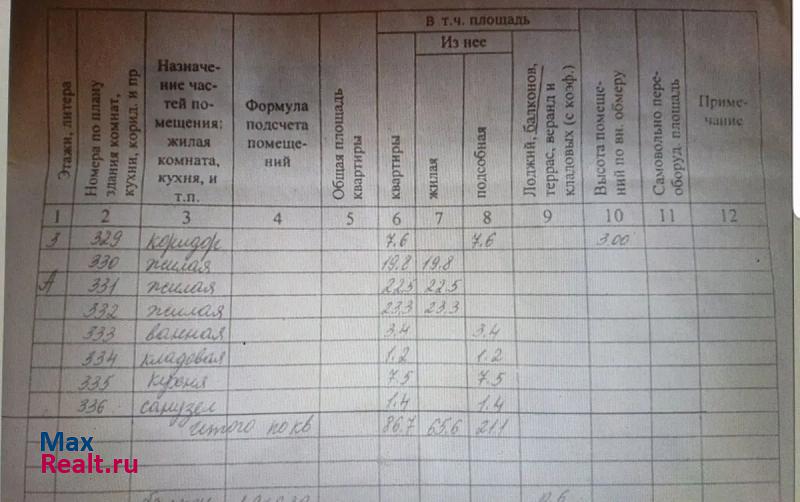 В т.ч. площадь
Из нее
Этажи, литера
Номера по плану здания комнат, кухни, корид. и пр
Назначе-
ние час-
тей по-
мещения:
жилая
комната,
кухня, и
т.п.
Формула
подсчета
помеще-
ний
Общая площадь квартиры
квартиры
жилая
подсобная
Лоджий, балконов, террас, веранд и кладовых (с коэф.)
Высота помеще-
ний по вн. обмеру
Самовольно пере-
оборуд. площадь
Приме-
чание
1 2 3 4 5 6 7 8 9 10 11 12
3 329 коридор 7.6 7.6 3.00
330 жилая 19.8 19.8
А 331 жилая 22.5 22.5
332 жилая 23.3 23.3
333 ванная 3.4 3.4
334 кладовая 1.2 1.2
335 кухня 7.5 7.5
336 санузел 1.4 1.4
итого по кв 86.7 65.6 21.1
Max
Realt.ru